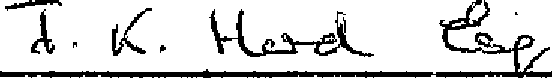 F. K. Herd Esq